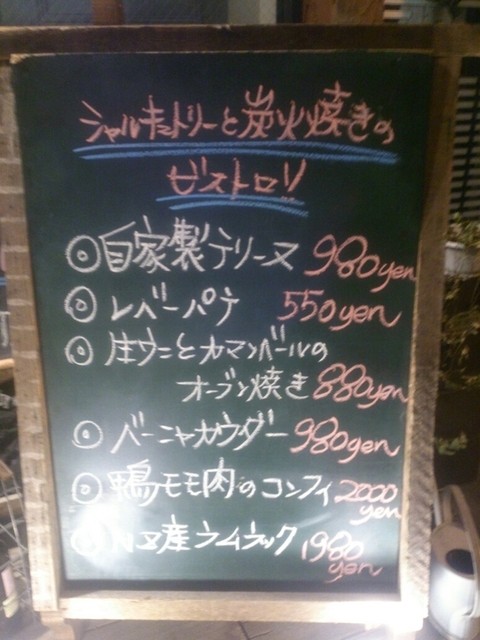 シャルキュトリーと炭火焼きの
ビストロ
◎自家製テリーヌ 980yen
◎レバーパテ 550yen
◎生ウニとカマンベールの
オーブン焼き 880yen
◎バーニャカウダー 980yen
◎鴨モモ肉のコンフィ 2000
yen
◎NZ産ラムラック 1980
yen